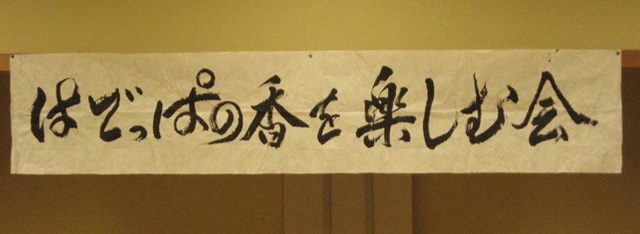 はどっぱの香を楽しむ会